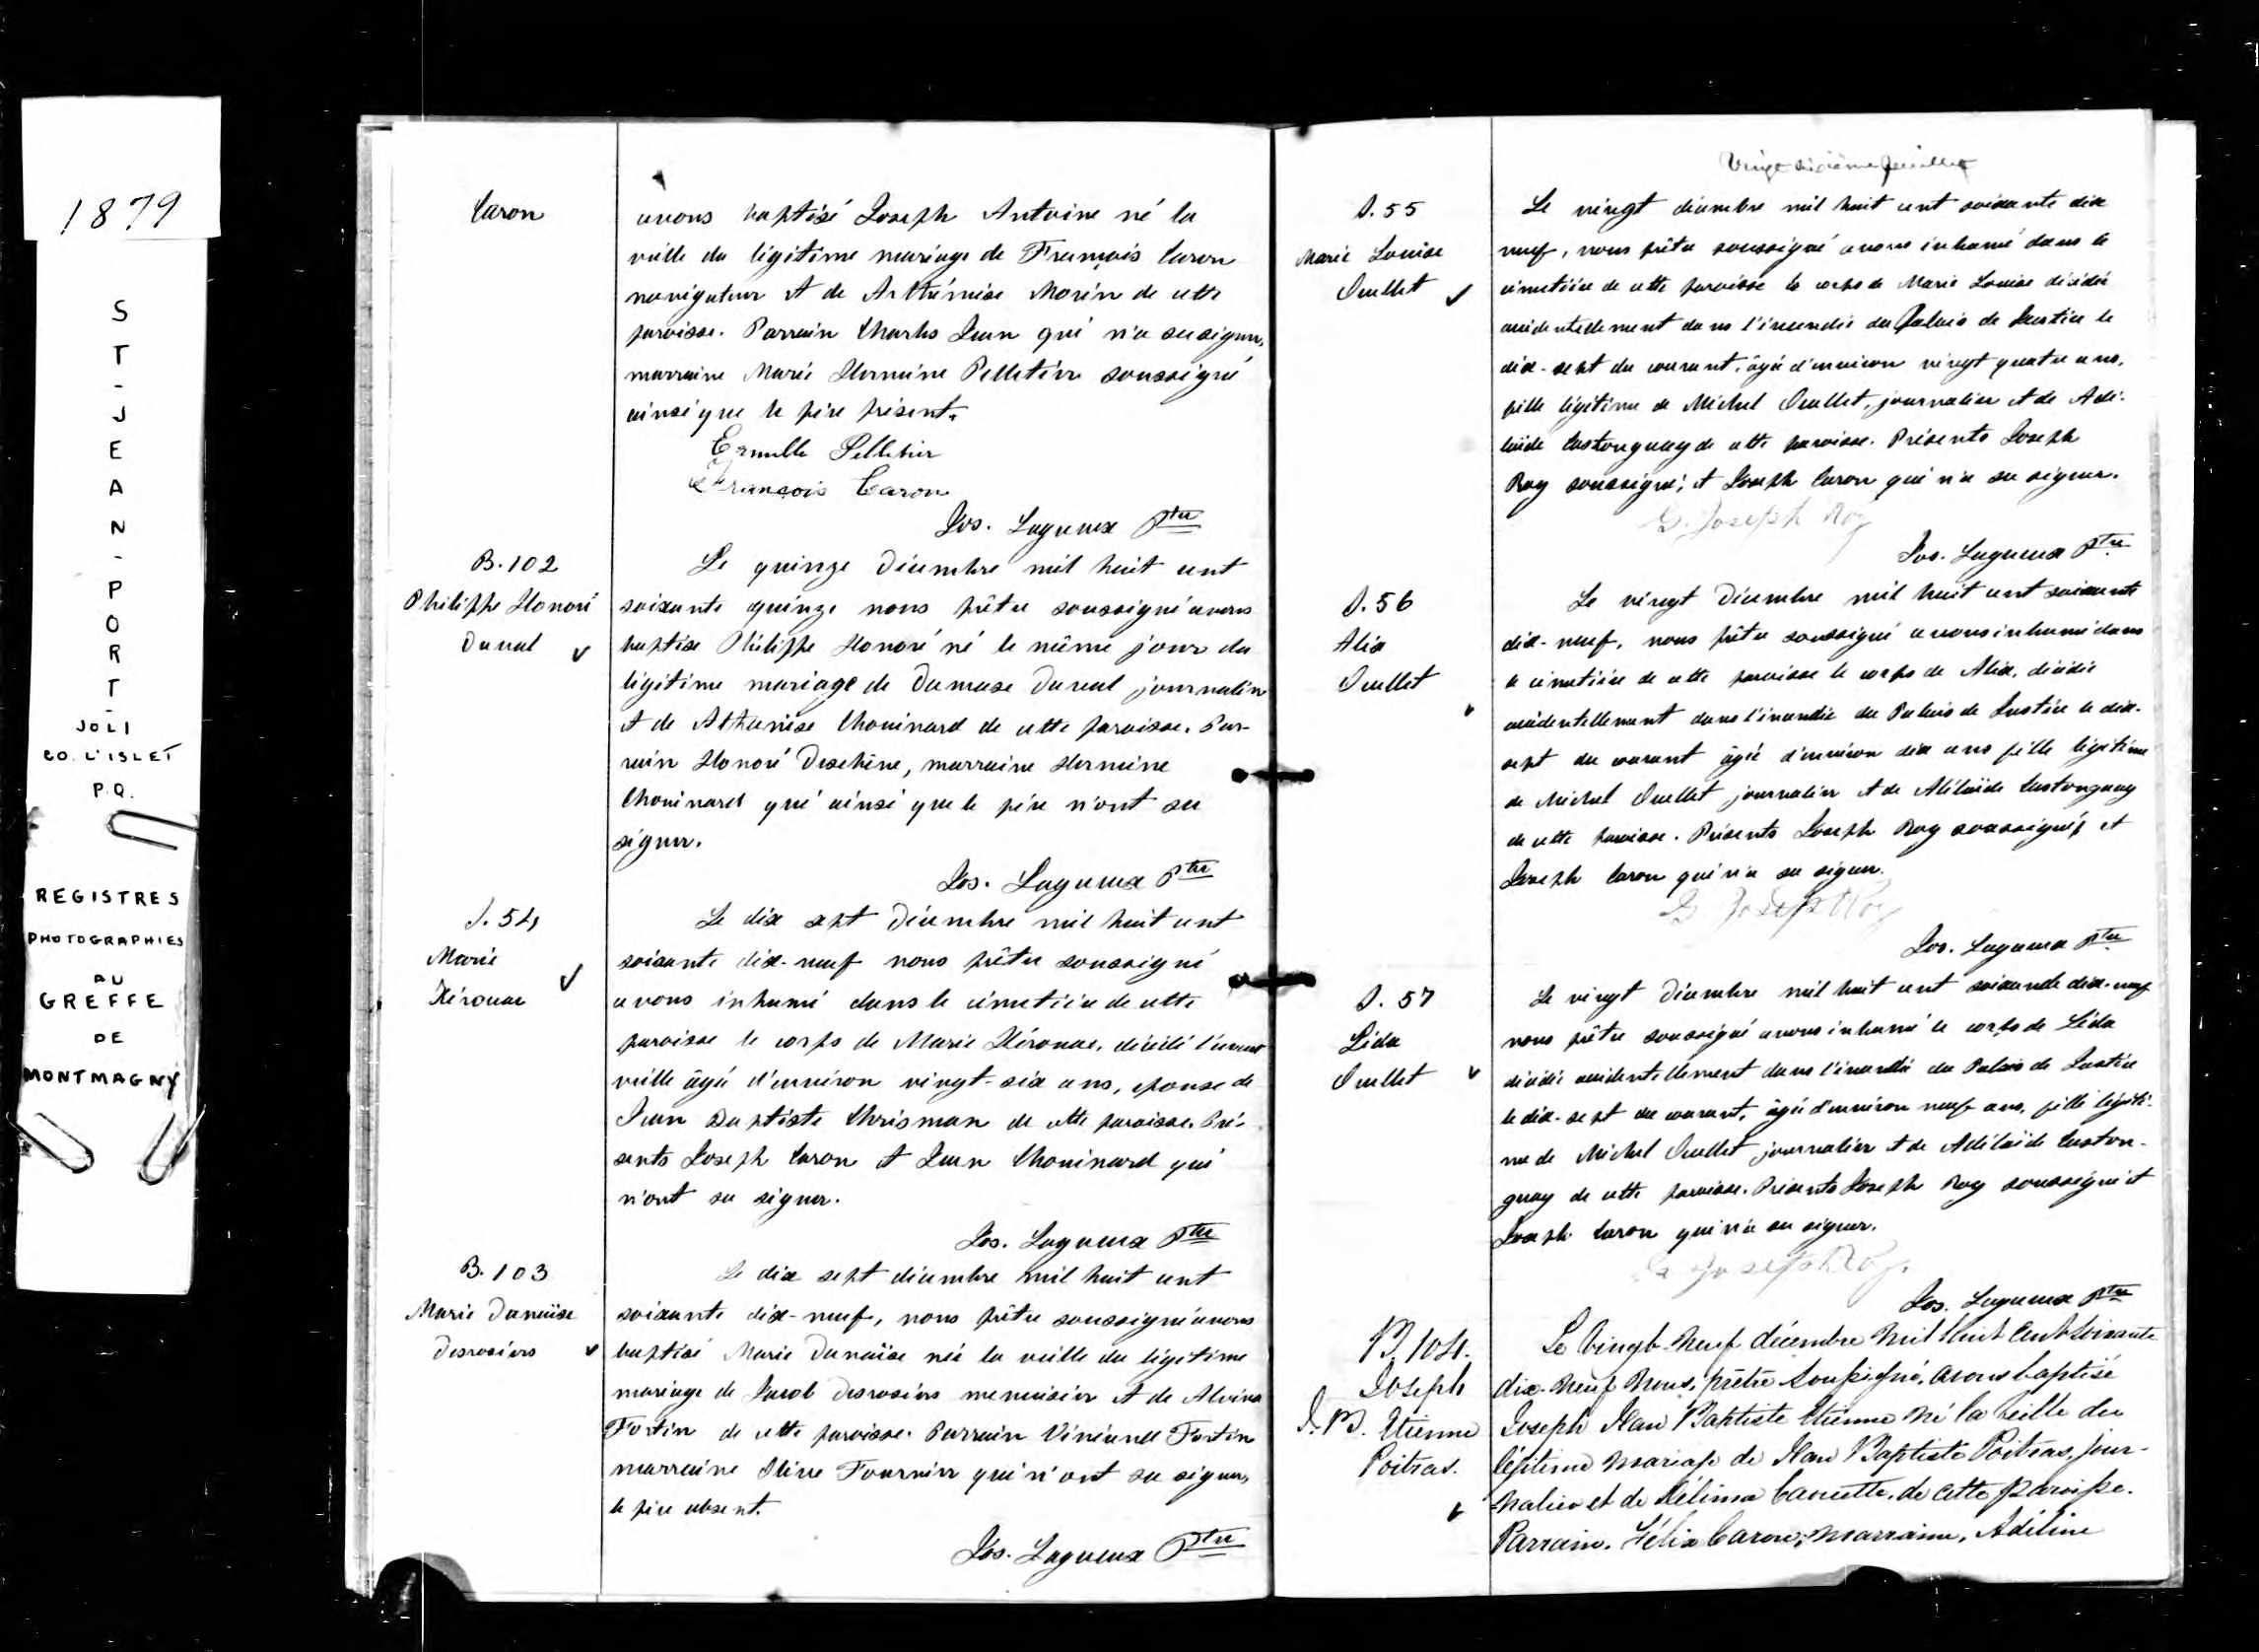 1879
ST-JEAN-PORT-
JOLI
CO. L'ISLET
P.Q.
REGISTRES
PHOTOGRAPHIES
AU
GREFFE
DE
MONTMAGNY
Caron
avons baptisé Joseph Antoine né la
veille du légitime mariage de François Caron
navigateur et de Arthémise Morin de cette
paroisse. Parrain Charles Jean qui n'a su signer,
marraine Marie Hermine Pelletier soussigné
ainsi que le père présent.
Pelletier
François Caron
Jos. Lagueux Ptre
B. 102
Philippe Honoré
Duval
Le quinze Décembre mil huit cent
soixante quinze nous prêtre soussigné avons
baptisé Philippe Honoré né le même jour du
légitime mariage de Damase Duval journalier
et de Athanïse Chouinard de cette paroisse. Par-
rain Honoré Deschêne, marraine Hermine
Chouinard qui ainsi que le père n'ont su
signer.
Jos. Lagueux Ptre
S. 54
Marie
Kérouac
Le dix sept Décembre mil huit cent
soixante dix-neuf nous prêtre soussigné
avons inhumé dans le cimetière de cette
paroisse le corps de Marie Kérouac, décédé l'avant
veille âgée d'environ vingt-six ans, épouse de
Jean Baptiste Chrisman de cette paroisse. Pré-
sents Joseph Caron et Jean Chouinard qui
n'ont su signer.
Jos. Lagueux Ptre
B. 103
Marie Danaïse
Desrosiers
Le dix sept décembre mil huit cent
soixante dix-neuf, nous prêtre soussigné avons
baptisé Marie Danaïse née la veille du légitime
mariage de Jacob Desrosiers menuisier et de Alvina
Fortin de cette paroisse. Parrain Fortin
marraine Fournier qui n'ont su signer,
le père absent.
Jos. Lagueux Ptre
Vingt sixième feuillet
S. 55
Marie Louise
Ouellet
Le vingt décembre mil huit cent soixante dix
neuf, nous prêtre soussigné avons inhumé dans le
cimetière de cette paroisse le corps de Marie Louise décédée
accidentellement dans l'incendie du Palais de Justice le
dix-sept du courant, âgée d'environ vingt quatre ans,
fille légitime de Michel Ouellet, journalier et de Adé-
laïde Castonguay de cette paroisse. Présents Joseph
Roy soussigné; et Joseph Caron qui n'a su signer.
G. Joseph Roy
Jos. Lagueux Ptre
S. 56
Alix
Ouellet
Le vingt Décembre mil huit cent soixante
dix-neuf, nous prêtre soussigné avons inhumé dans
le cimetière de cette paroisse le corps de Alix, décédée
accidentellement dans l'incendie du Palais de Justice le dix-
sept du courant âgée d'environ dix ans fille légitime
de Michel Ouellet journalier et de Adélaïde Castonguay
de cette paroisse. Présents Joseph Roy soussigné, et
Joseph Caron qui n'a su signer.
G Joseph Roy
Jos. Lagueux Ptre
S. 57
Léda
Ouellet
Le vingt Décembre mil huit cent soixante dix-neuf
nous prêtre soussigné avons inhumé le corps de Léda
décédée accidentellement dans l'incendie du Palais de Justice
le dix-sept du courant, âgée d'environ neuf ans, fille légiti-
me de Michel Ouellet journalier et de Adélaïde Caston-
guay de cette paroisse. Présents Joseph Roy soussigné et
Joseph Caron qui n'a su signer.
G Joseph Roy
Jos. Lagueux Ptre
B. 104.
Joseph
J. B. Etienne
Poitras.
Le Vingt-neuf décembre mil huit cent soixante
dix-neuf Nous, prêtre soussigné, avons baptisé
Joseph Jean Baptiste Etienne né la veille du
légitime mariage de Jean Baptiste Poitras, jour-
nalier et de Zélima Caouette, de cette paroisse.
Parrain. Félix Caron; marraine, Adéline